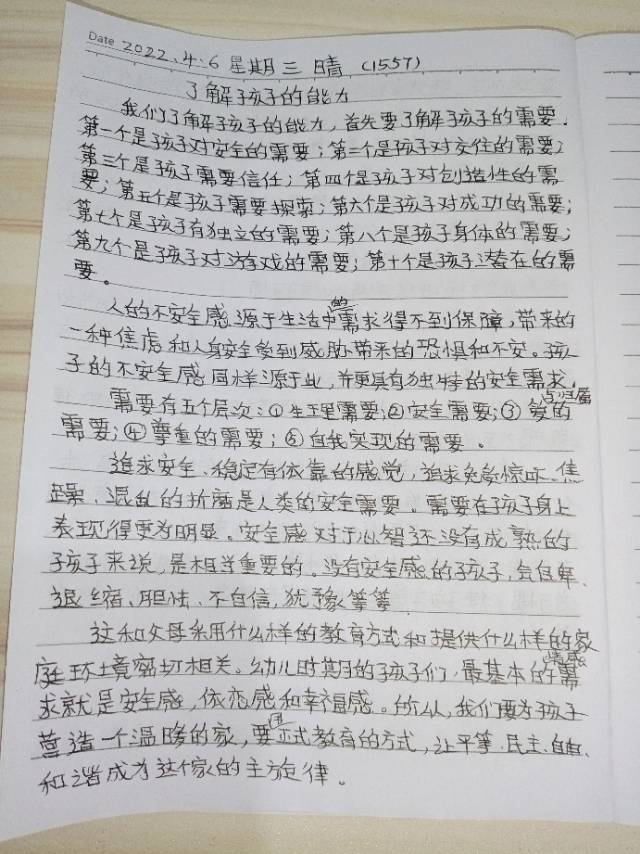 Date 2022.4.6 星期三 晴 (1557)
了解孩子的能力
我们了解孩子的能力，首先要了解孩子的需要。
第一个是孩子对安全的需要；第二个是孩子对交往的需要；
第三个是孩子需要信任；第四个是孩子对创造性的需
要；第五个是孩子需要探索；第六个是孩子对成功的需要；
第七个是孩子有独立的需要；第八个是孩子身体的需要；
第九个是孩子对游戏的需要；第十个是孩子潜在的需
要。
人的不安全感源于生活中的需求得不到保障，带来的
一种焦虑和人身安全受到威胁带来的恐惧和不安。孩
子的不安全感同样源于此，并更具有独特的安全需求。
需要有五个层次：①生理需要；②安全需要；③爱的点归属
需要；④尊重的需要；⑤自我实现的需要。
追求安全、稳定有依靠的感觉，追求免除惊吓、焦
躁、混乱的折磨是人类的安全需要。需要在孩子身上
表现得更为明显。安全感对于心智还没有成熟的
孩子来说，是相当重要的。没有安全感的孩子，会自卑、
退缩、胆怯、不自信，犹豫等等
这和父母采用什么样的教育方式和提供什么样的家
庭环境密切相关。幼儿时期的孩子们，最基本的情感需
求就是安全感，依恋感和幸福感。所以，我们要为孩子
营造一个温暖的家，要正式教育的方式，让平等、民主、自由、
和谐成为这个家的主旋律。